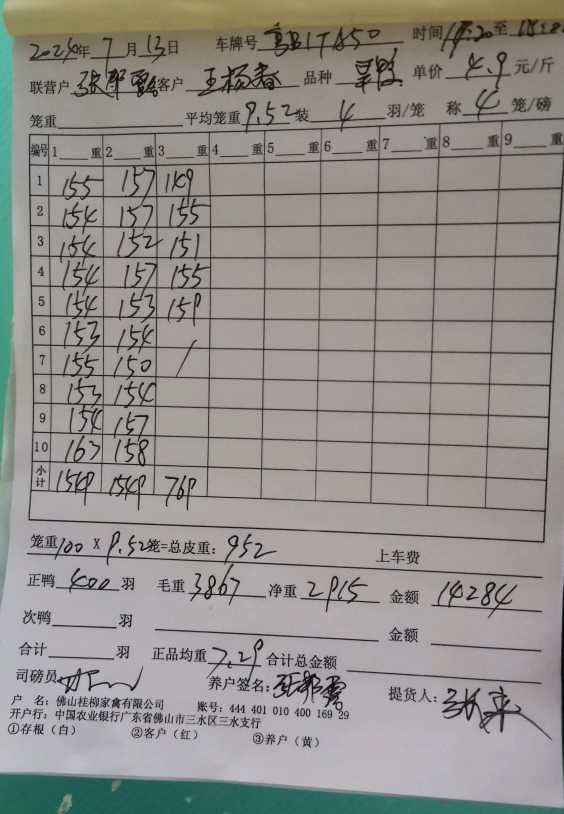 2024年 7 月 13 日 车牌号 时间 至
联营户 客户 王杨春 品种 单价 4.9 元/斤
笼重 平均笼重 9.52 装 4 羽/笼 称 4 笼/磅
编号 1 重 2 重 3 重 4 重 5 重 6 重 7 重 8 重 9 重
1 155 157 149
2 154 157 155
3 154 152 151
4 154 157 155
5 154 153 159
6 153 154
7 155 150 /
8 153 154
9 154 157
10 163 158
小计 1549 1549 769
笼重 100 X 9.52 笼=总皮重: 952 上车费
正鸭 400 羽 毛重 3867 净重 2915 金额 14284
次鸭 羽 金额
合计 羽 正品均重 7.29 合计总金额
司磅员 养户签名: 提货人:
户 名: 佛山桂柳家禽有限公司 账号: 444 401 010 400 169 29
开户行: 中国农业银行广东省佛山市三水区三水支行
①存根（白） ②客户（红） ③养户（黄）